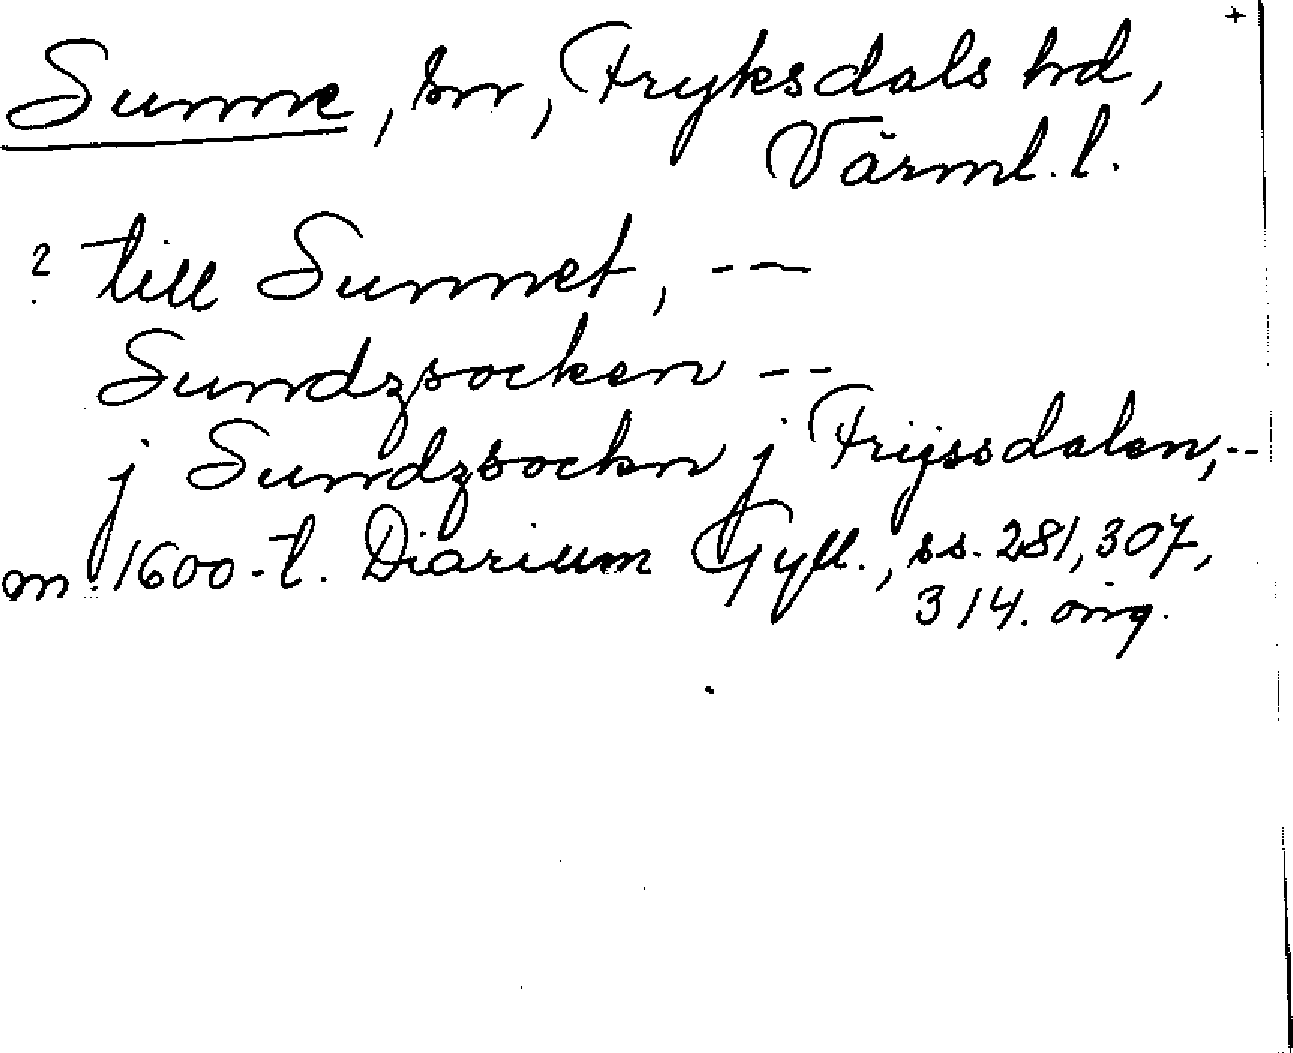 +
Sunne, sn, Fryksdals hd,
Värml. l.
? till Sunnet, ---
Sundzsocken --
j Sundzsockn j Frijssdalen, --
m. 1600-t. Diarium Gyll., ss. 281, 307,
314. orig.